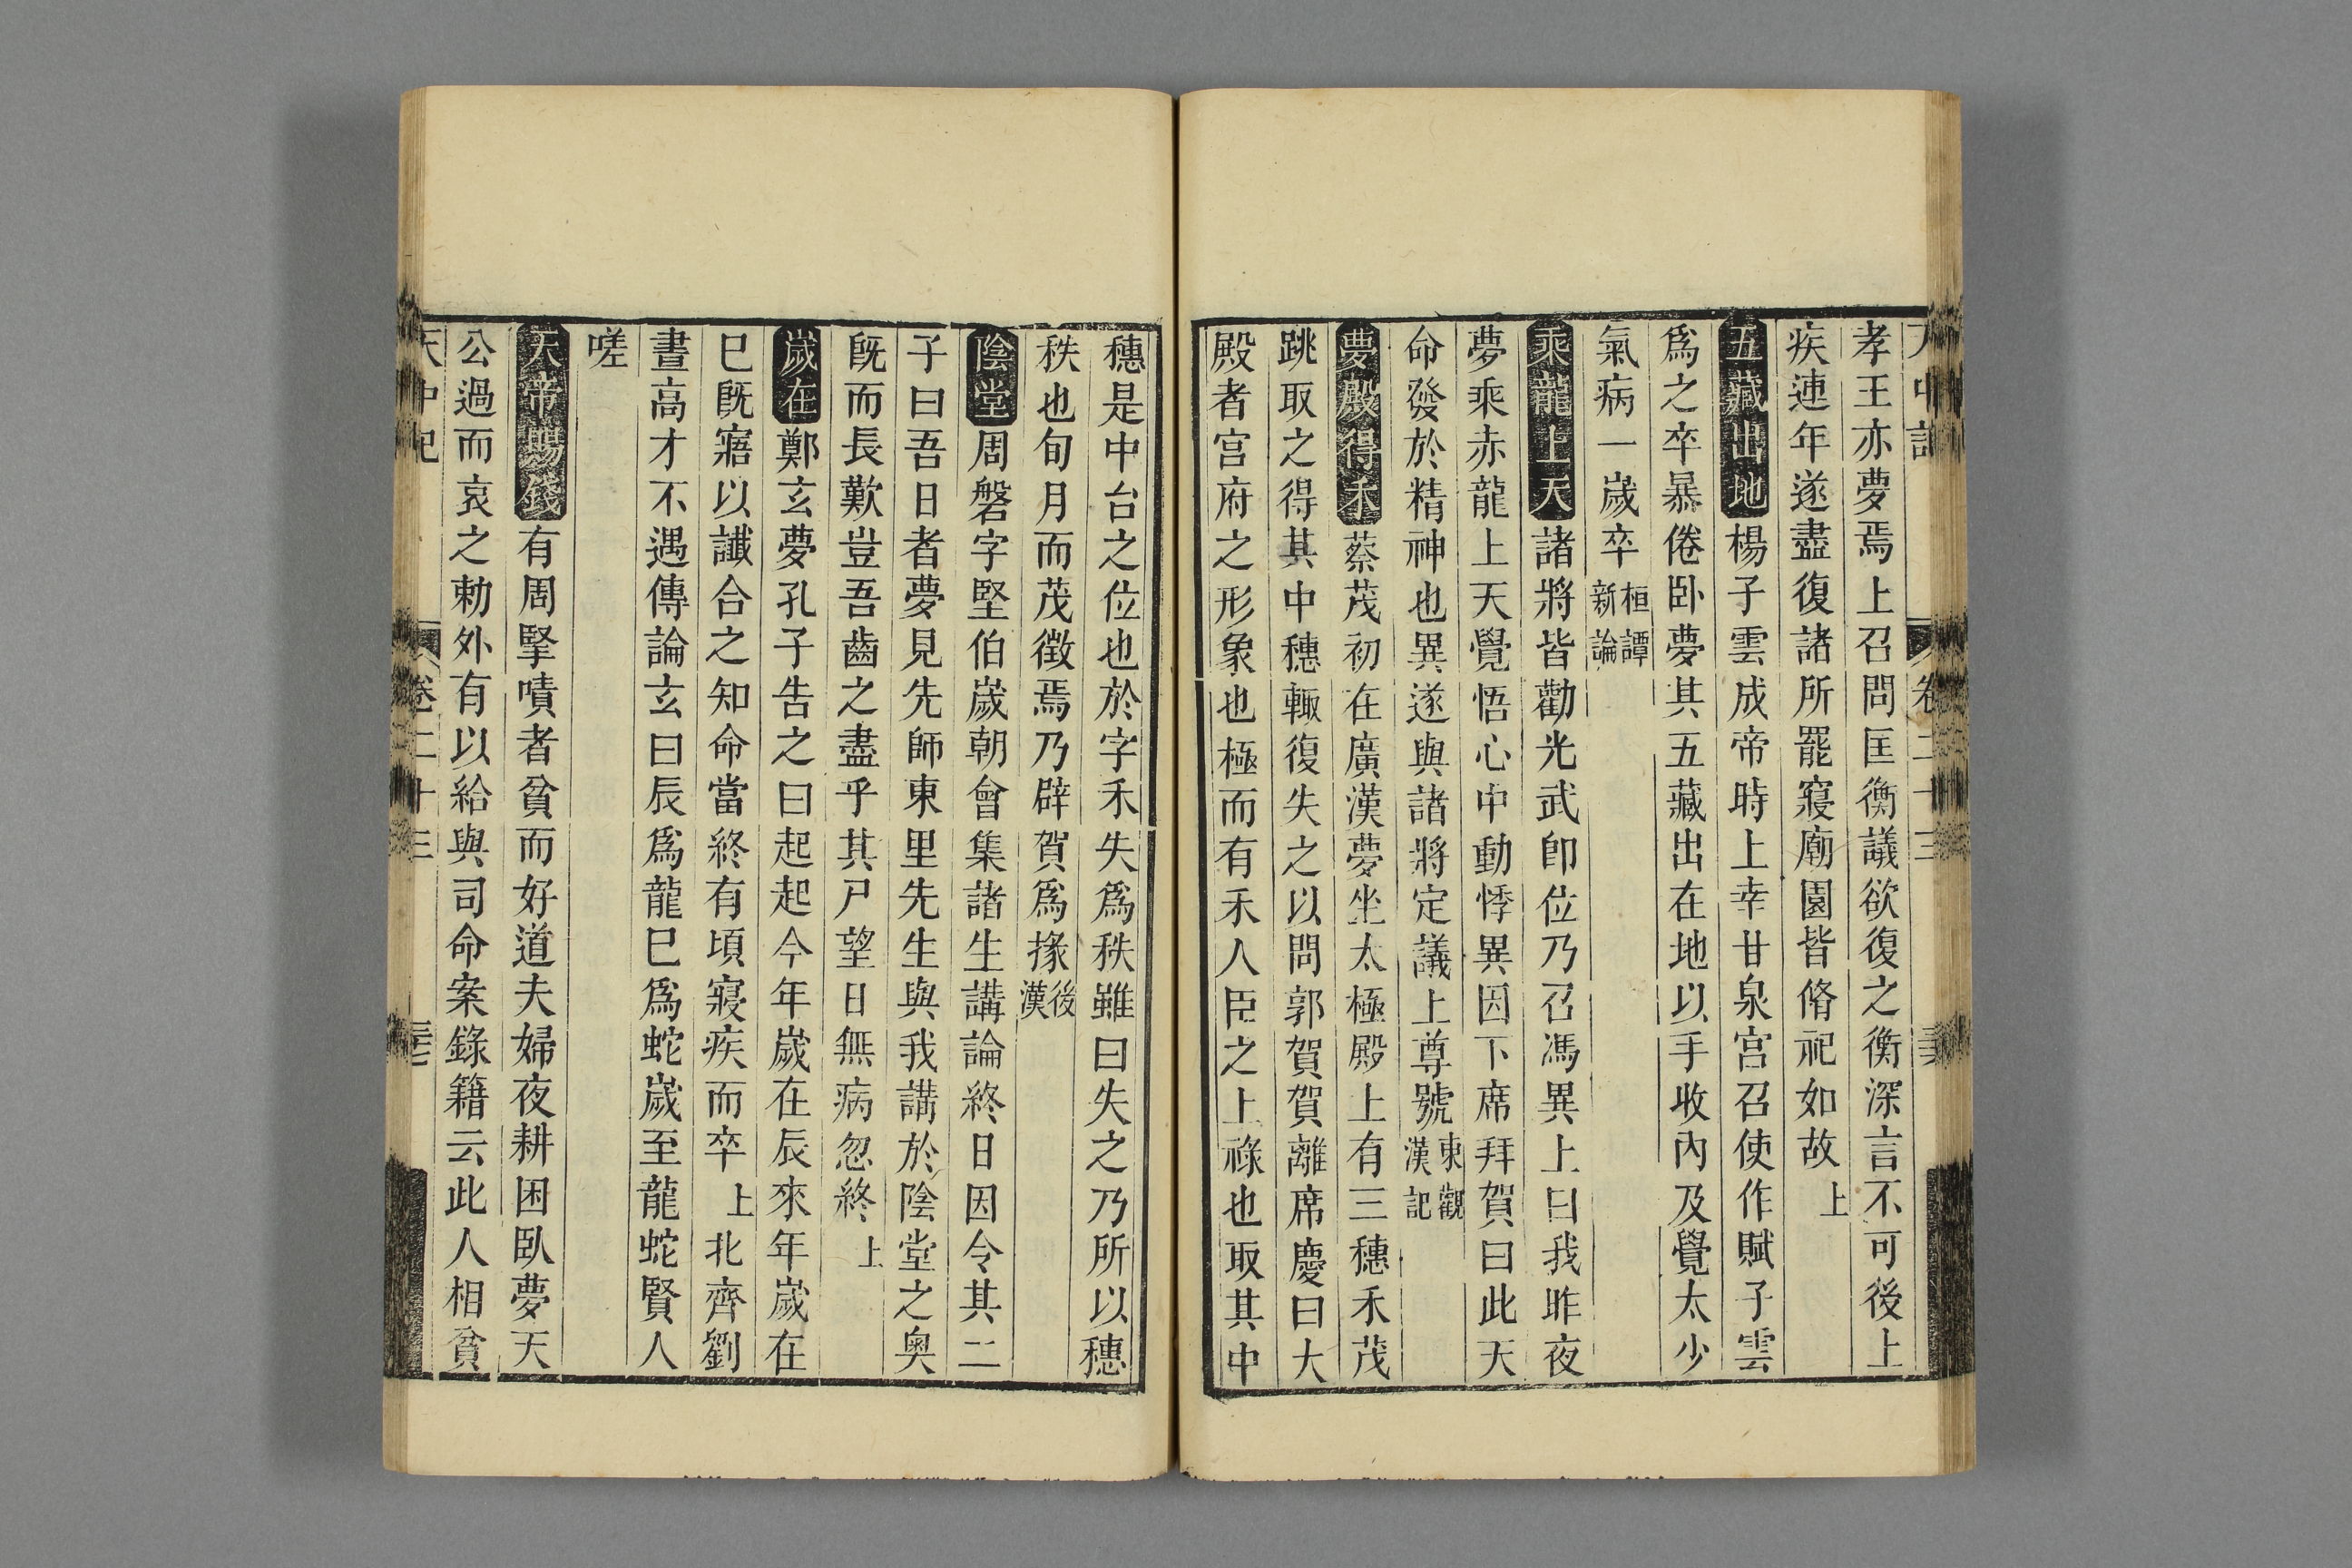 孝王亦夢焉上召問匡衡議欲復之衡深言不可後上
疾連年遂盡復諸所罷寢廟園皆脩祀如故上
五藏出地楊子雲成帝時上幸甘泉宫召使作賦子雲
爲之卒暴倦卧夢其五藏出在地以手收內及覺太少
氣病一歲卒桓譚新論
乘龍上天諸將皆勸光武卽位乃召馮異上曰我昨夜
夢乘赤龍上天覺悟心中動悸異因下席拜賀曰此天
命發於精神也異遂與諸將定議上尊號東觀漢記
夢殿得禾蔡茂初在廣漢夢坐太極殿上有三穗禾茂
跳取之得其中穗輙復失之以問郭賀賀離席慶曰大
殿者宫府之形象也極而有禾人臣之上祿也取其中
穗是中台之位也於字禾失爲秩雖曰失之乃所以穗
秩也旬月而茂徵焉乃辟賀爲掾後漢
陰堂周磐字堅伯歲朝會集諸生講論終日因令其二
子曰吾日者夢見先師東里先生與我講於陰堂之奥
旣而長歎豈吾齒之盡乎其尸望日無病忽終上
歲在鄭玄夢孔子告之曰起起今年歲在辰來年歲在
巳旣寤以讖合之知命當終有頃寢疾而卒上北齊劉
晝高才不遇傳論玄曰辰爲龍巳爲蛇歲至龍蛇賢人
嗟
天帝賜錢有周犟嘖者貧而好道夫婦夜耕困臥夢天
公過而哀之勑外有以給與司命案錄籍云此人相貧
天中記
卷二十三